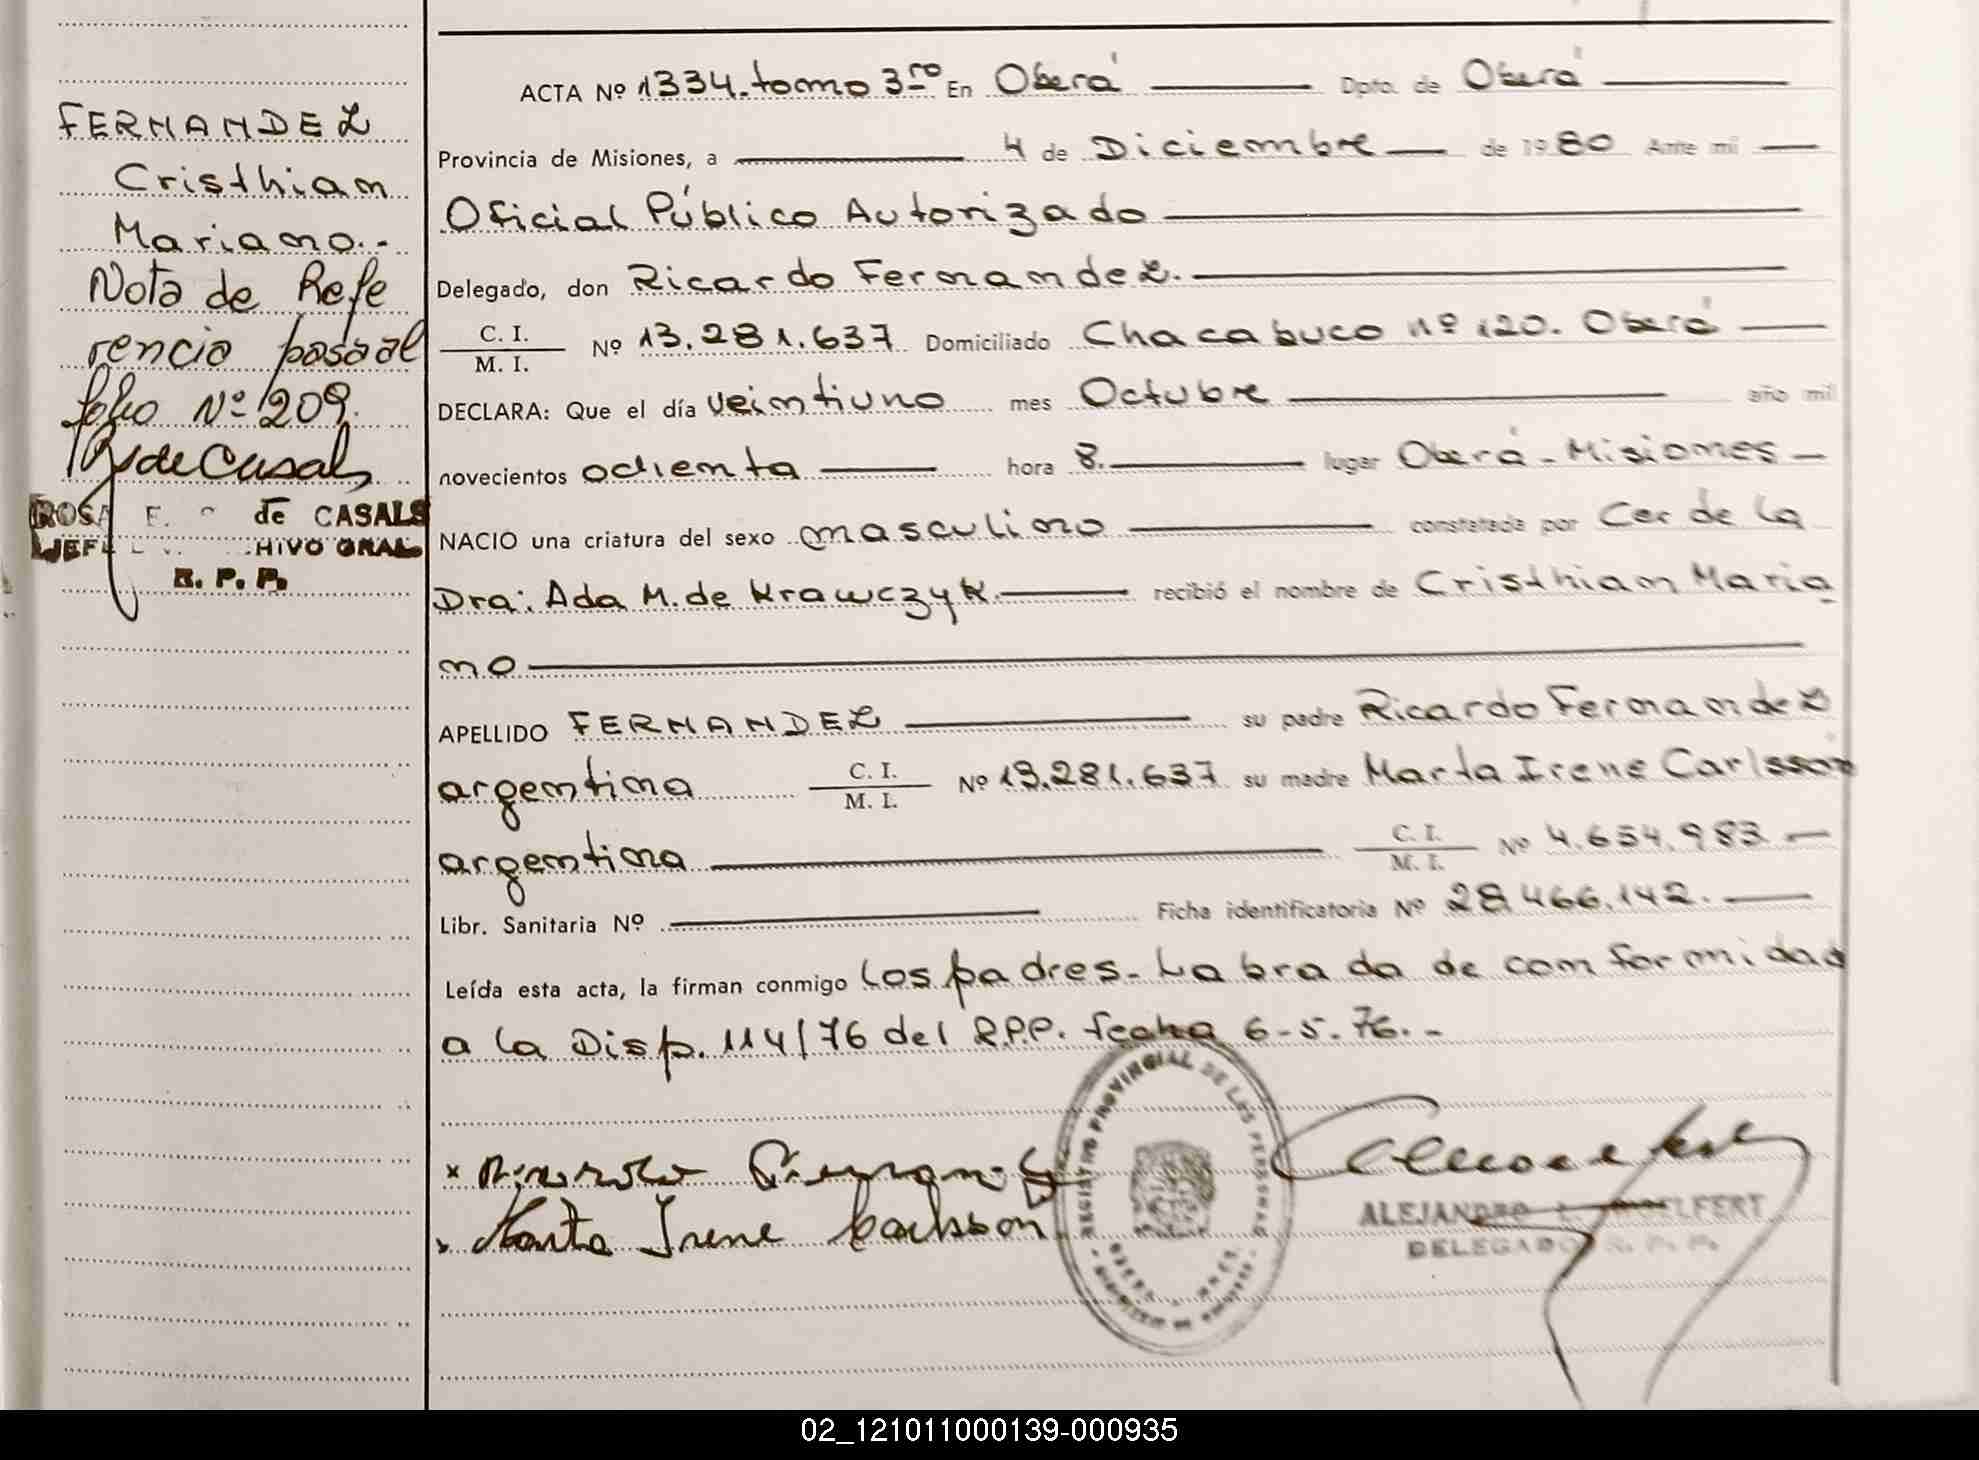 FERNANDEZ
Cristhian
Mariano.-
Nota de Refe
rencia pasa al
folio Nº 209.
R de Casals
ROSA E. de CASALS
JEFE HIVO GRAL
R. P. P.
ACTA Nº 1334. tomo 3ro En Oberá Dpto. de Oberá
Provincia de Misiones, a 4 de Diciembre de 1980 Ante mi
Oficial Público Autorizado
Delegado, don Ricardo Fernandez.
C. I.
M. I. Nº 13.281.637 Domiciliado Chacabuco nº 120. Oberá
DECLARA: Que el día veintiuno mes Octubre año mil
novecientos ochenta hora 8. lugar Oberá - Misiones
NACIO una criatura del sexo masculino constatada por Cer de la
Dra: Ada M. de Krawczyk. recibió el nombre de Cristhian Maria
no
APELLIDO FERNANDEZ su padre Ricardo Fernandez
argentina C. I. M. I. Nº 13.281.637 su madre Marta Irene Carlsson
argentina C. I. M. I. Nº 4.654.983
Libr. Sanitaria Nº Ficha identificatoria Nº 28.466.142.
Leída esta acta, la firman conmigo los padres. Labrada de conformidad
a la Disp. 114/76 del R.P.P. fecha 6-5.76.-
REGISTRO PROVINCIAL DE LAS PERSONAS
x Ricardo Fernandez
x Marta Irene Carlsson
ALEJANDRO
DELEGADO R. P. P.
02_121011000139-000935